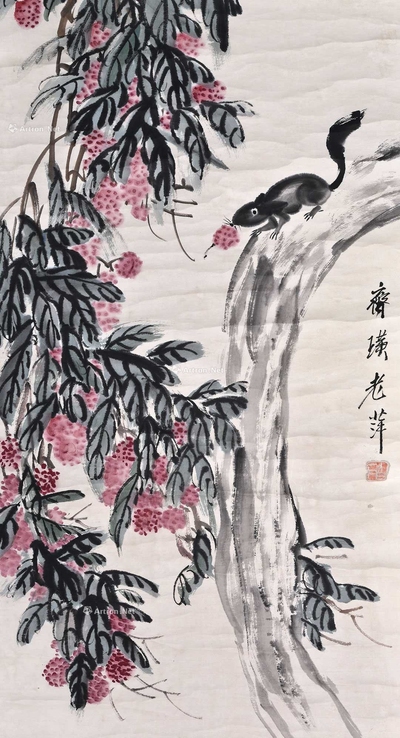 齊璜老萍
Artron.Net
Artron.Net
Artron.Net
Artron.Net